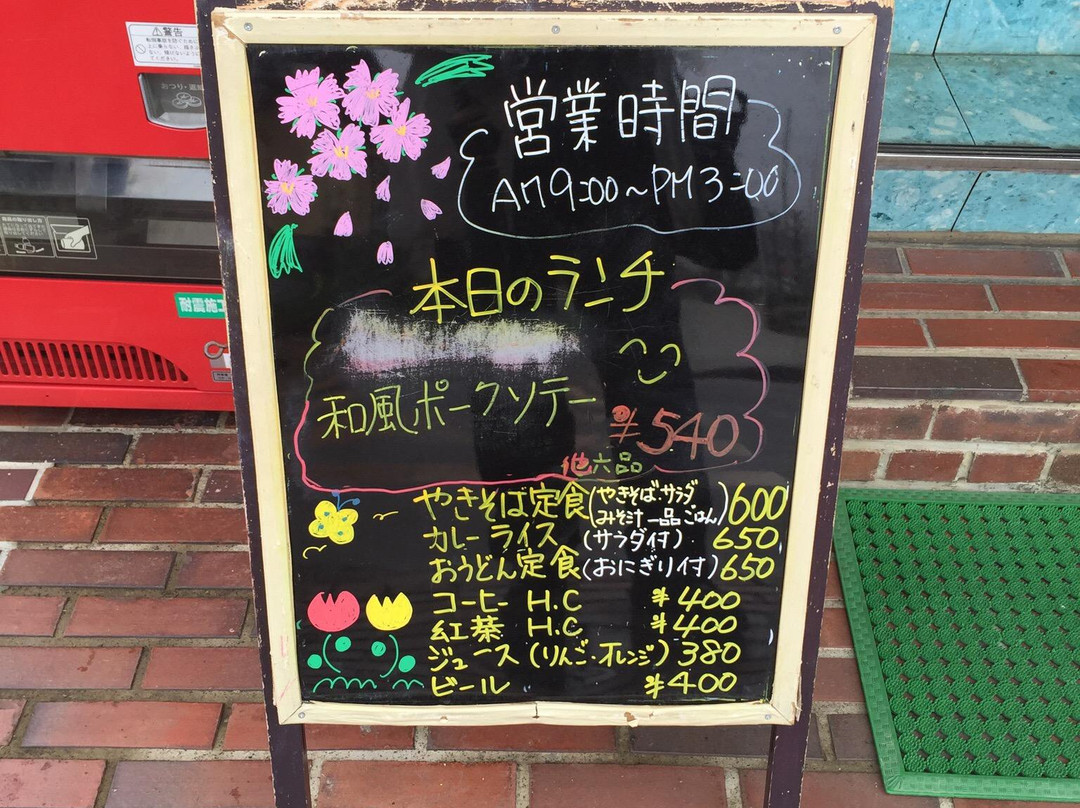 警告
おつり・返却
耐震施工
営業時間
AM9:00〜PM3:00
本日のランチ
和風ポークソテー
¥540
他六品
やきそば定食(やきそば・サラダ みそ汁 一品 ごはん)600
カレーライス (サラダ付) 650
おうどん定食(おにぎり付)650
コーヒー H.C ¥400
紅茶 H.C ¥400
ジュース (りんご・オレンジ) 380
ビール ¥400